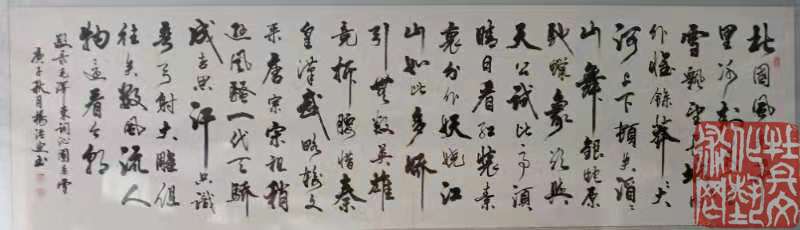 北国風
里冰封
雪飘望
外惟餘莽莽大
河上下顿失滔滔
山舞銀蛇原
驰蜡象欲与
天公试比高须
晴日看红装素
裹分外妖娆江
山如此多娇
引無数英雄
竞折腰惜秦
皇漢武略输文
采唐宗宋祖稍
逊風骚一代天骄
成吉思汗只识
弯弓射大雕俱
往矣数風流人
物还看今朝
毛泽东词沁园春雪
庚子秋月